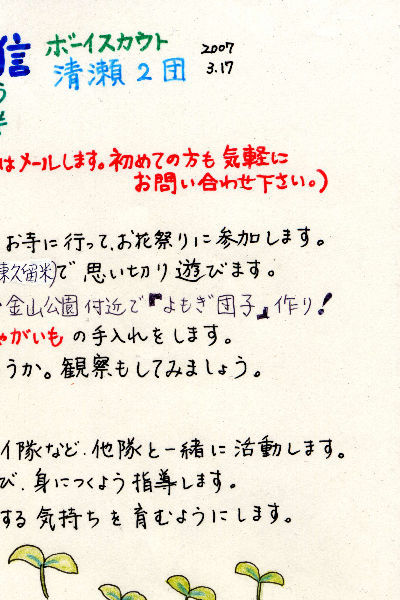 信 ボーイスカウト 2007
清瀬2団 3.17
はメールします。初めての方も気軽に
お問い合わせ下さい。)
お寺に行って、お花祭りに参加します。
東久留米で思い切り遊びます。
金山公園付近で『よもぎ団子』作り!
ゃがいもの手入れをします。
うか。観察もしてみましょう。
イ隊など、他隊と一緒に活動します。
び、身につくよう指導します。
する気持ちを育むようにします。